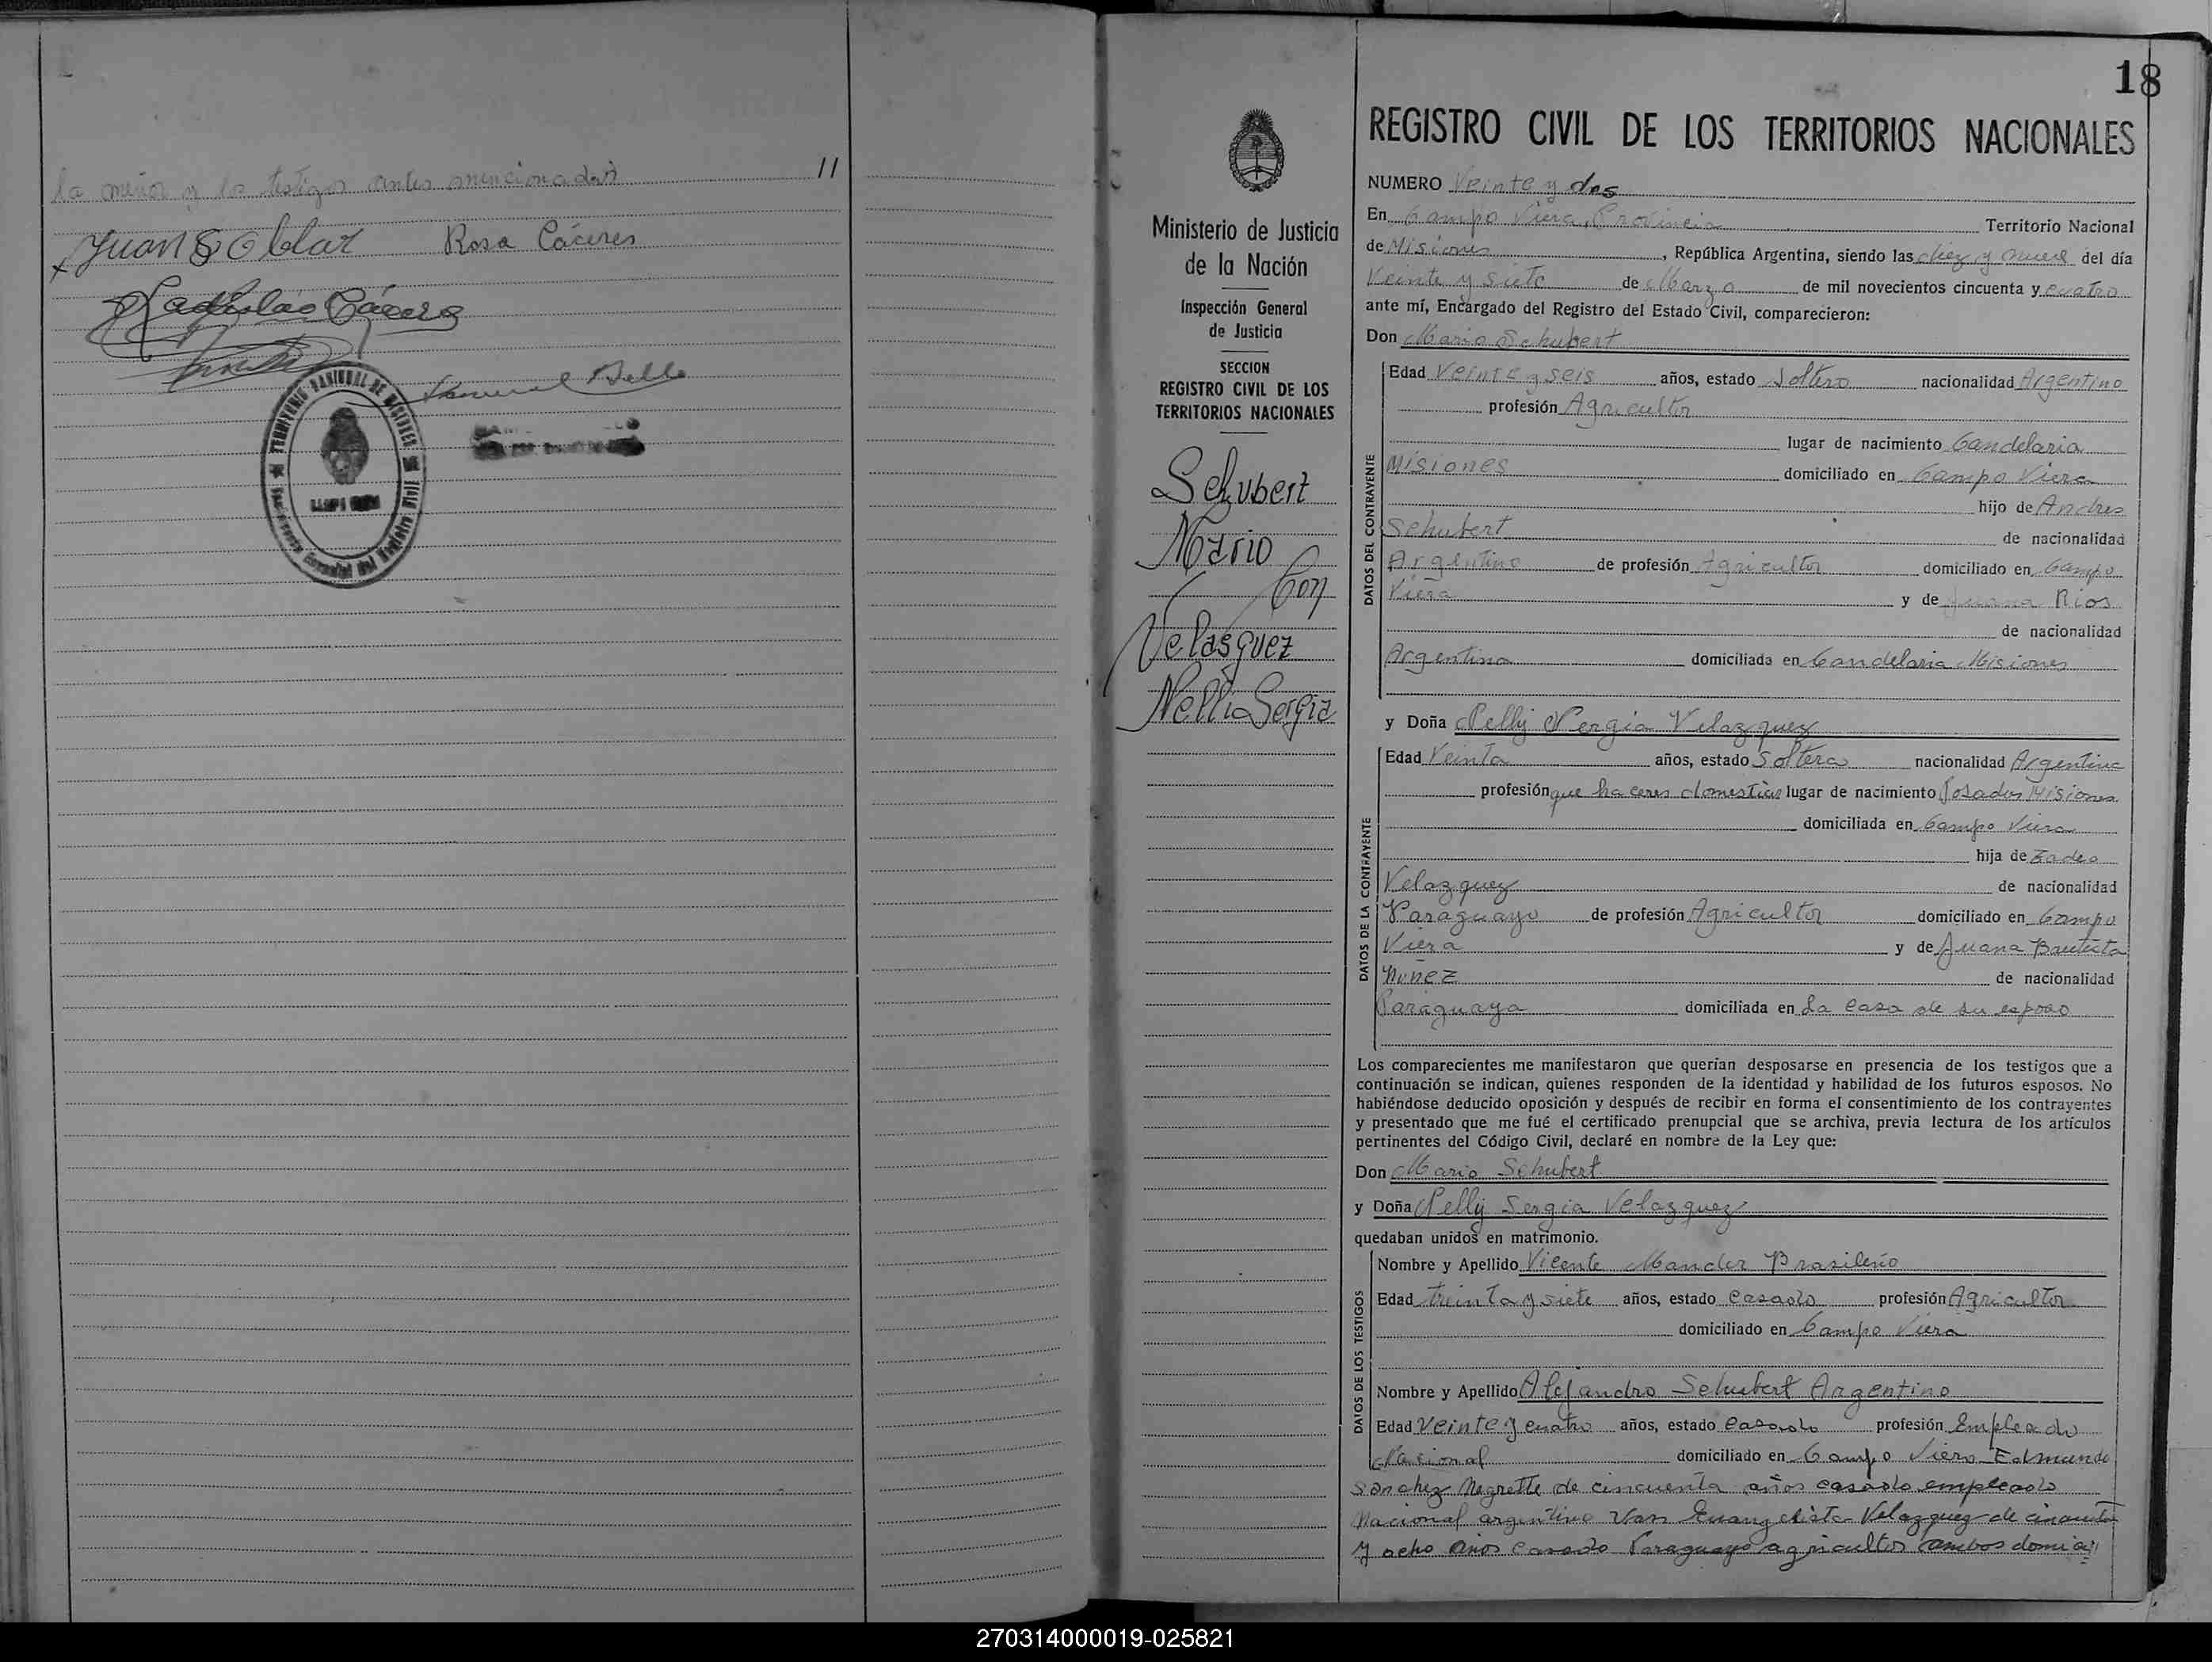 la menor y los testigos antes mencionados 11
Juan Soblar Rosa Cáceres
Ladislao Cáceres
Manuel Bello
TERRITORIO NACIONAL DE MISIONES
del Registro Civil
18
REGISTRO CIVIL DE LOS TERRITORIOS NACIONALES
Ministerio de Justicia
de la Nación
Inspección General
de Justicia
SECCION
REGISTRO CIVIL DE LOS
TERRITORIOS NACIONALES
Schubert
Mario
Con
Velasquez
Nelli Sergia
NUMERO Veinte y dos
En Campo Viera, Provincia Territorio Nacional
de Misiones, República Argentina, siendo las diez y nueve del día
Veinte y siete de Marzo de mil novecientos cincuenta y cuatro
ante mí, Encargado del Registro del Estado Civil, comparecieron:
Don Mario Schubert
DATOS DEL CONTRAYENTE
Edad Veinte y seis años, estado Soltero nacionalidad Argentino
profesión Agricultor
lugar de nacimiento Candelaria
Misiones domiciliado en Campo Viera
hijo de Andres
Schubert de nacionalidad
Argentino de profesión Agricultor domiciliado en Campo
Viera y de Juana Rios
de nacionalidad
Argentina domiciliada en Candelaria Misiones
y Doña Nelly Sergia Velazquez
DATOS DE LA CONTRAYENTE
Edad Veinta años, estado Soltera nacionalidad Argentina
profesión que haceres domesticos lugar de nacimiento Posadas Misiones
domiciliada en Campo Viera
hija de Tadeo
Velazquez de nacionalidad
Paraguayo de profesión Agricultor domiciliado en Campo
Viera y de Juana Bautista
Nuñez de nacionalidad
Paraguaya domiciliada en La casa de su esposo
Los comparecientes me manifestaron que querían desposarse en presencia de los testigos que a
continuación se indican, quienes responden de la identidad y habilidad de los futuros esposos. No
habiéndose deducido oposición y después de recibir en forma el consentimiento de los contrayentes
y presentado que me fué el certificado prenupcial que se archiva, previa lectura de los artículos
pertinentes del Código Civil, declaré en nombre de la Ley que:
Don Mario Schubert
y Doña Nelly Sergia Velazquez
quedaban unidos en matrimonio.
DATOS DE LOS TESTIGOS
Nombre y Apellido Vicente Mander Brasileño
Edad treinta y siete años, estado casado profesión Agricultor
domiciliado en Campo Viera
Nombre y Apellido Alejandro Schubert Argentino
Edad Veinte y cuatro años, estado casado profesión Empleado
Nacional domiciliado en Campo Viera Edmundo
Sanchez Negrette de cincuenta años casado empleado
Nacional argentino Evangelista Velazquez de cincuenta
y ocho años casado Paraguayo agricultor ambos domici
270314000019-025821